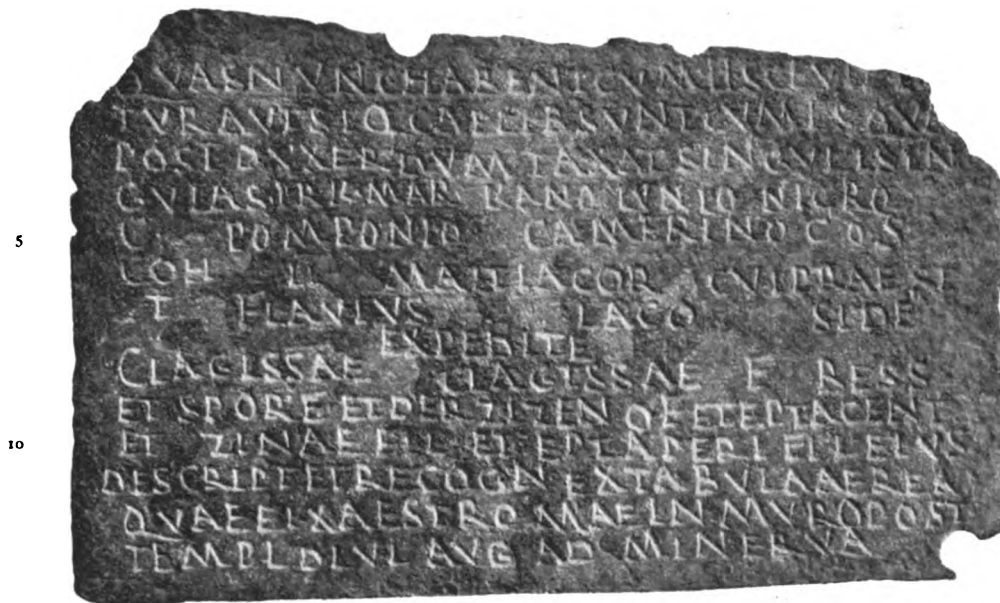 QVAS NVNC HABENT CVM IIS CIVI
TVR AVT SI Q CAELIB SVNT CVM IS QVA
POST DVXER DVMTAXAT SINGVLI SIN
GVLAS PR K MAR KANO IVNIO NIGRO
5 C POMPONIO CAMERINO COS
COH II MATTIACOR CVI PRAEST
T FLAVIVS LACO SIDE
EXPEDITE
CLAGISSAE CLAGISSAE F BESS
10 ET SPORE ET DERZIZENI F ET EPTACENT
ET ZINAE FIL ET EPTAPERI FIL EIVS
DESCRIPT ET RECOGN EX TABVLA AEREA
QVAE FIXA EST ROMAE IN MVRO POST
TEMPL DIVI AVG AD MINERVA